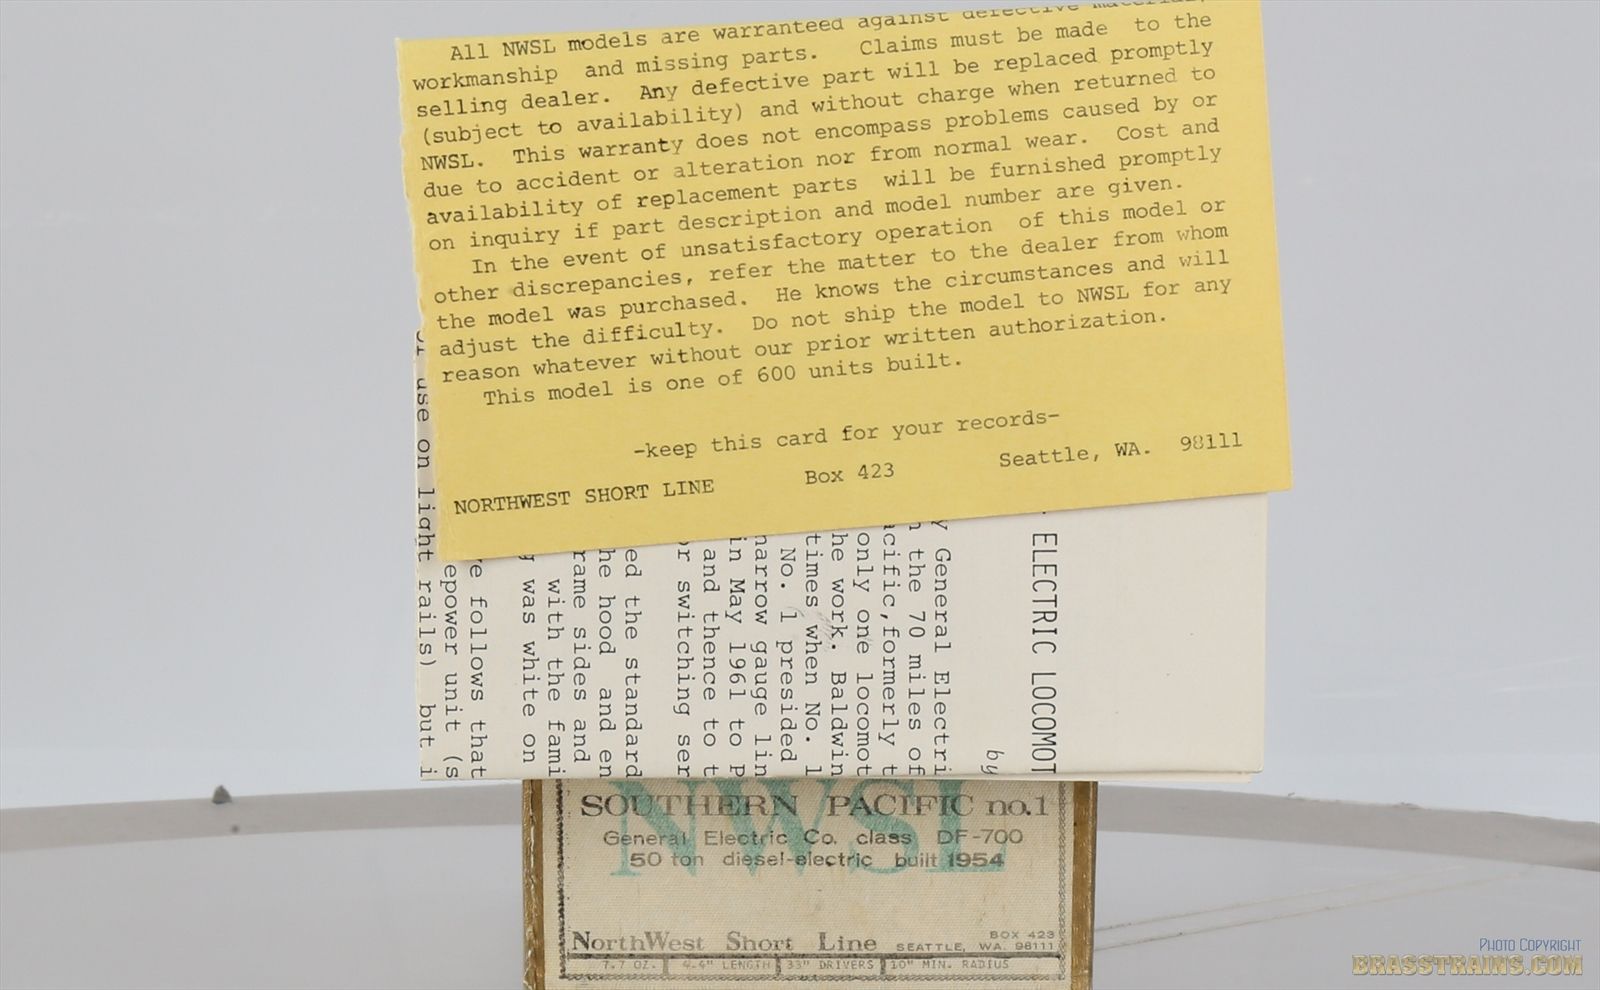 All NWSL models are warranteed against defective material,
workmanship and missing parts. Claims must be made to the
selling dealer. Any defective part will be replaced promptly
(subject to availability) and without charge when returned to
NWSL. This warranty does not encompass problems caused by or
due to accident or alteration nor from normal wear. Cost and
availability of replacement parts will be furnished promptly
on inquiry if part description and model number are given.
In the event of unsatisfactory operation of this model or
other discrepancies, refer the matter to the dealer from whom
the model was purchased. He knows the circumstances and will
adjust the difficulty. Do not ship the model to NWSL for any
reason whatever without our prior written authorization.
This model is one of 600 units built.
-keep this card for your records-
NORTHWEST SHORT LINE Box 423 Seattle, WA. 98111
ELECTRIC LOCOMOT
by
y General Electri
n the 70 miles of
acific, formerly t
only one locomot
he work. Baldwin
times when No. 1
No. 1 presided
narrow gauge lin
in May 1961 to P
and thence to t
or switching ser
ed the standard
he hood and en
rame sides and
with the fami
g was white on
e follows that
epower unit (s
use on light rails) but i
NWSL
SOUTHERN PACIFIC no.1
General Electric Co. class DF-700
50 ton diesel-electric built 1954
NorthWest Short Line BOX 423 SEATTLE, WA. 98111
7.7 OZ. 4.4" LENGTH 33" DRIVERS 10" MIN. RADIUS
PHOTO COPYRIGHT
BRASSTRAINS.COM